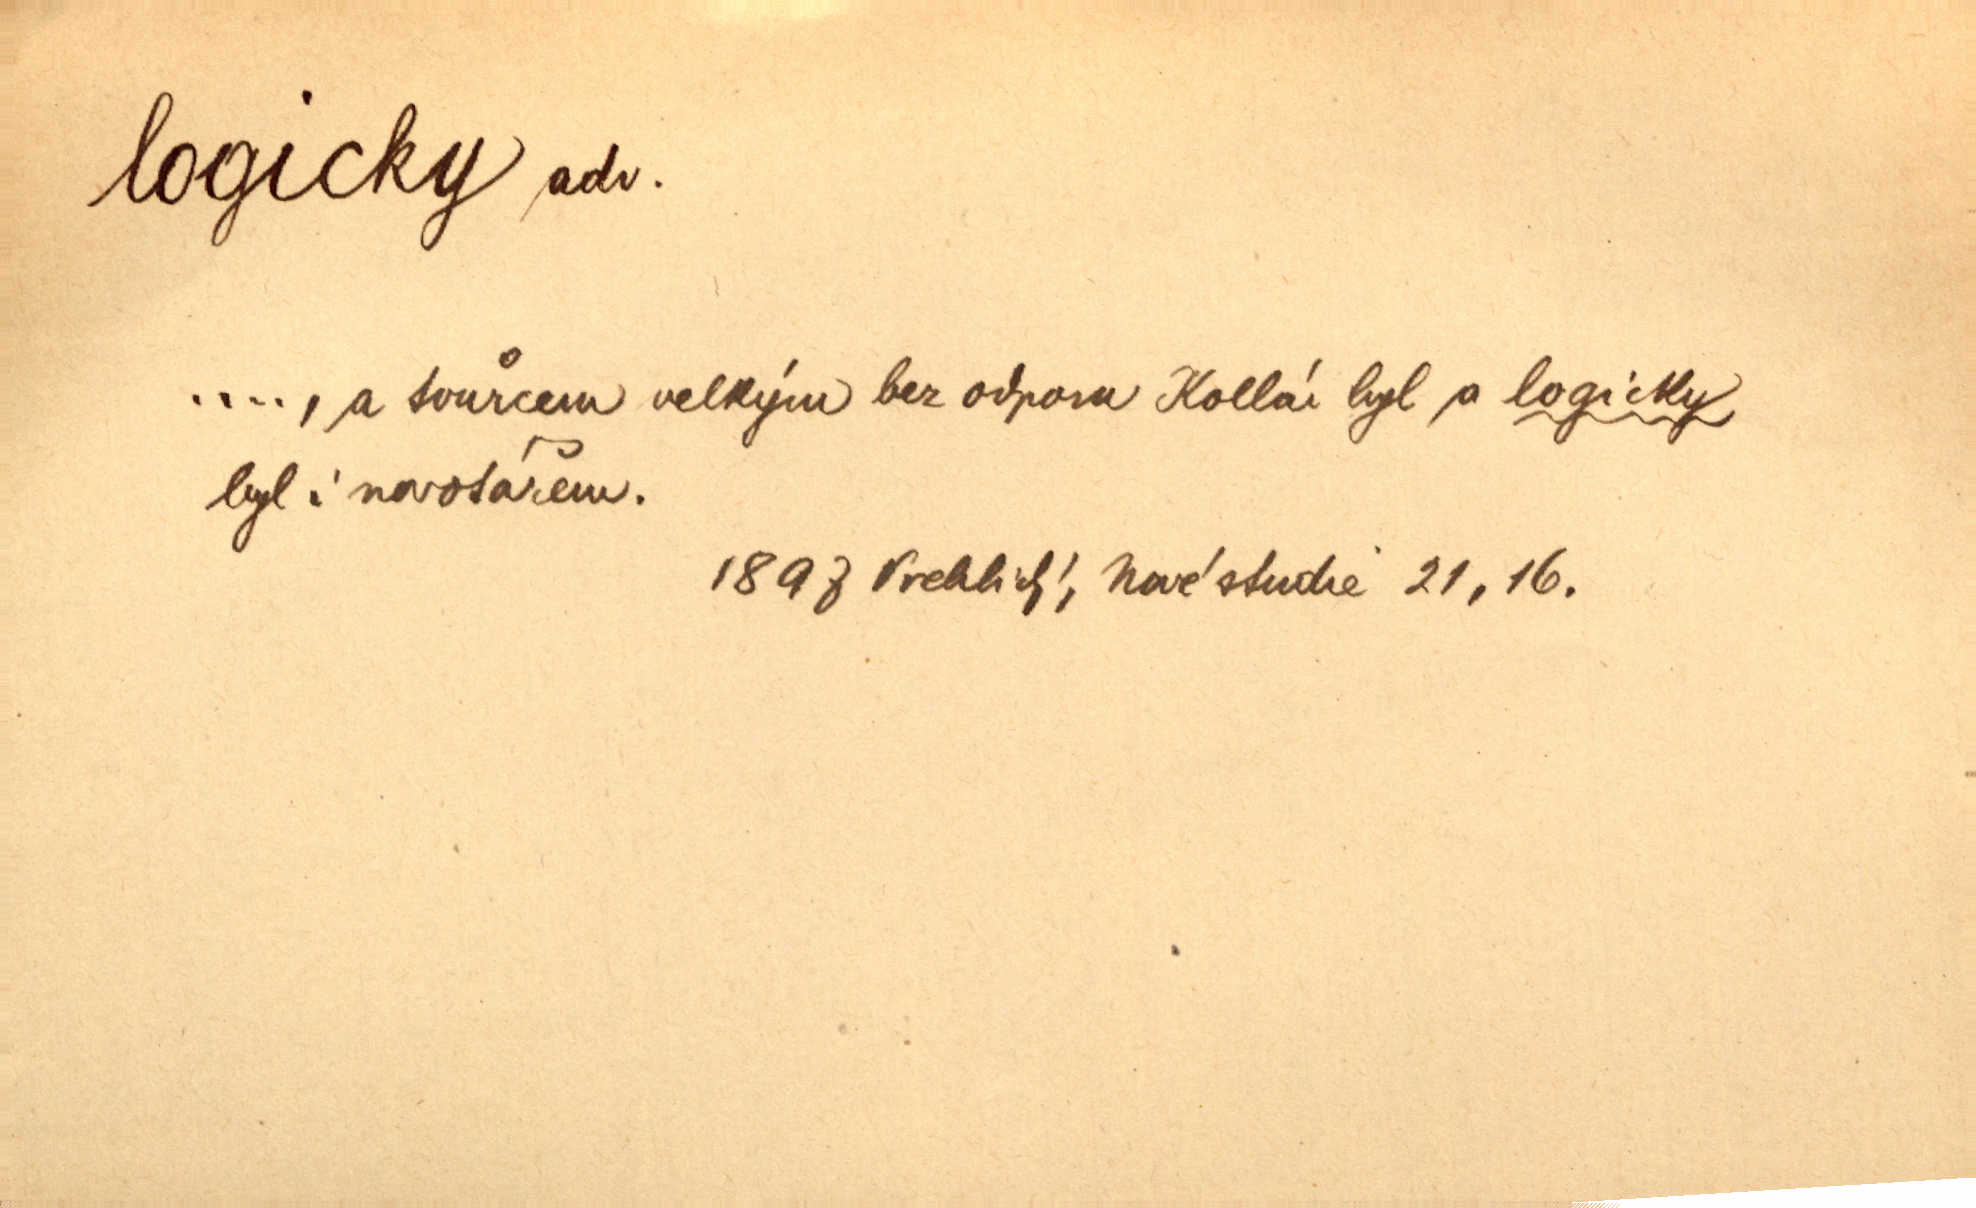 logicky adv.
...., a tvůrcem velkým bez odporu Kollár byl a logicky
byl i novotářem.
1897 Vrchlický, Nové studie 21, 16.